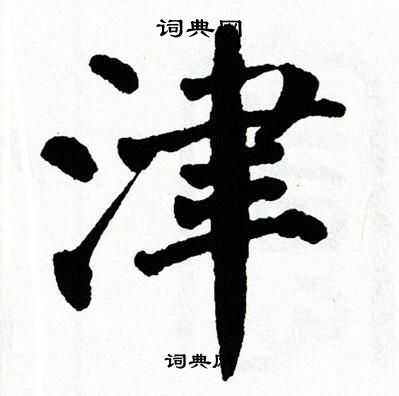 词典网
津
词典网